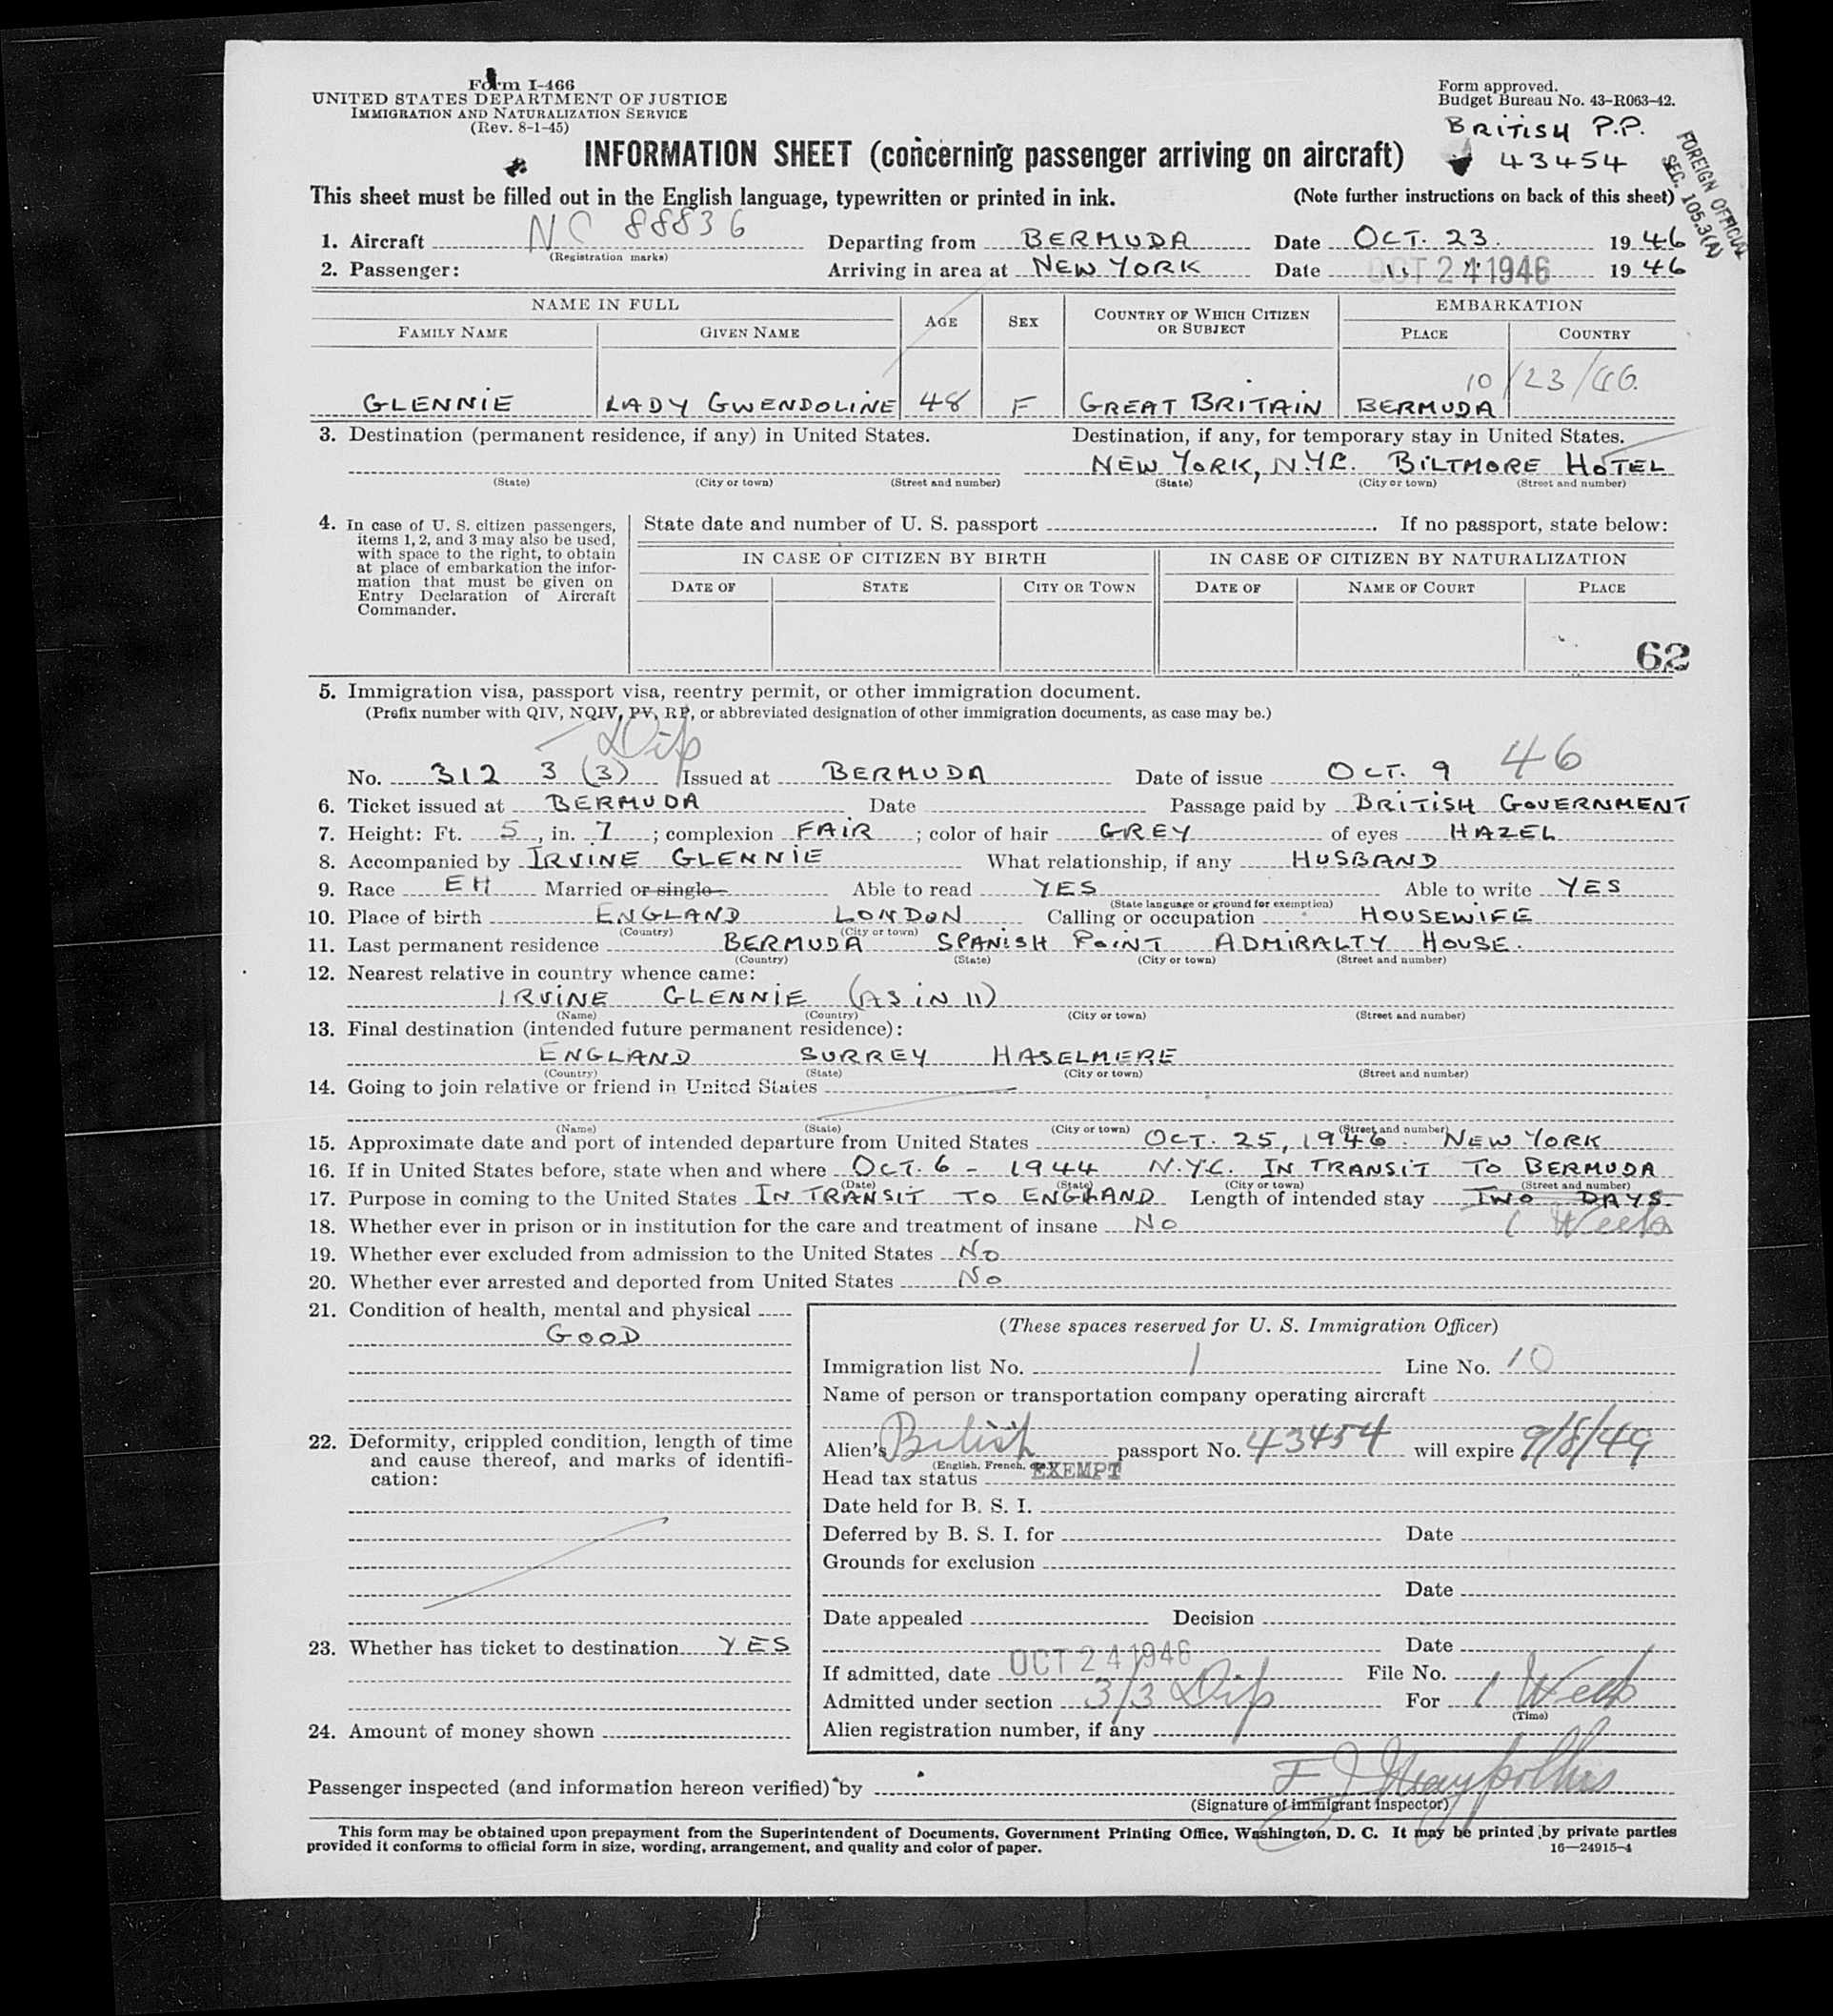 Form I-466
UNITED STATES DEPARTMENT OF JUSTICE
IMMIGRATION AND NATURALIZATION SERVICE
(Rev. 8-1-45)
Form approved.
Budget Bureau No. 43-R063-42.
BRITISH P.P.
43454
FOREIGN OFFICIAL
SEC. 105.3(A)
INFORMATION SHEET (concerning passenger arriving on aircraft)
This sheet must be filled out in the English language, typewritten or printed in ink. (Note further instructions on back of this sheet)
1. Aircraft NC 88836 Departing from BERMUDA Date OCT. 23. 1946
(Registration marks)
2. Passenger: Arriving in area at NEW YORK Date OCT 24 1946 1946
NAME IN FULL AGE SEX COUNTRY OF WHICH CITIZEN OR SUBJECT EMBARKATION
FAMILY NAME GIVEN NAME PLACE COUNTRY
10/23/46.
GLENNIE LADY GWENDOLINE 48 F GREAT BRITAIN BERMUDA
3. Destination (permanent residence, if any) in United States. Destination, if any, for temporary stay in United States.
NEW YORK, N.Y.C. BILTMORE HOTEL
(State) (City or town) (Street and number) (State) (City or town) (Street and number)
4. In case of U. S. citizen passengers, items 1, 2, and 3 may also be used, with space to the right, to obtain at place of embarkation the information that must be given on Entry Declaration of Aircraft Commander.
State date and number of U. S. passport . If no passport, state below:
IN CASE OF CITIZEN BY BIRTH IN CASE OF CITIZEN BY NATURALIZATION
DATE OF STATE CITY OR TOWN DATE OF NAME OF COURT PLACE
62
5. Immigration visa, passport visa, reentry permit, or other immigration document.
(Prefix number with QIV, NQIV, PV, RP, or abbreviated designation of other immigration documents, as case may be.)
Dip
No. 312 3 (3) Issued at BERMUDA Date of issue OCT. 9 46
6. Ticket issued at BERMUDA Date Passage paid by BRITISH GOVERNMENT
7. Height: Ft. 5, in. 7; complexion FAIR; color of hair GREY of eyes HAZEL
8. Accompanied by IRVINE GLENNIE What relationship, if any HUSBAND
9. Race EH Married or single Able to read YES Able to write YES
(State language or ground for exemption)
10. Place of birth ENGLAND LONDON Calling or occupation HOUSEWIFE
(Country) (City or town)
11. Last permanent residence BERMUDA SPANISH POINT ADMIRALTY HOUSE.
(Country) (State) (City or town) (Street and number)
12. Nearest relative in country whence came:
IRVINE GLENNIE (AS IN 11)
(Name) (Country) (City or town) (Street and number)
13. Final destination (intended future permanent residence):
ENGLAND SURREY HASELMERE
(Country) (State) (City or town) (Street and number)
14. Going to join relative or friend in United States
(Name) (State) (City or town) (Street and number)
15. Approximate date and port of intended departure from United States OCT. 25, 1946. NEW YORK
16. If in United States before, state when and where OCT. 6 - 1944 N.Y.C. IN TRANSIT TO BERMUDA
(Date) (State) (City or town) (Street and number)
17. Purpose in coming to the United States IN TRANSIT TO ENGLAND Length of intended stay TWO DAYS.
1 Week
18. Whether ever in prison or in institution for the care and treatment of insane NO
19. Whether ever excluded from admission to the United States NO
20. Whether ever arrested and deported from United States NO
21. Condition of health, mental and physical
GOOD
22. Deformity, crippled condition, length of time and cause thereof, and marks of identification:
23. Whether has ticket to destination YES
24. Amount of money shown
(These spaces reserved for U. S. Immigration Officer)
Immigration list No. 1 Line No. 10
Name of person or transportation company operating aircraft
Alien's British passport No. 43454 will expire 9/8/49
(English, French, etc.)
Head tax status EXEMPT
Date held for B. S. I.
Deferred by B. S. I. for Date
Grounds for exclusion
Date
Date appealed Decision
Date
If admitted, date OCT 24 1946 File No.
Admitted under section 3/3 Dip For 1 Week
(Time)
Alien registration number, if any
Passenger inspected (and information hereon verified) by
(Signature of immigrant inspector)
This form may be obtained upon prepayment from the Superintendent of Documents, Government Printing Office, Washington, D. C. It may be printed by private parties
provided it conforms to official form in size, wording, arrangement, and quality and color of paper.
16—24915-4